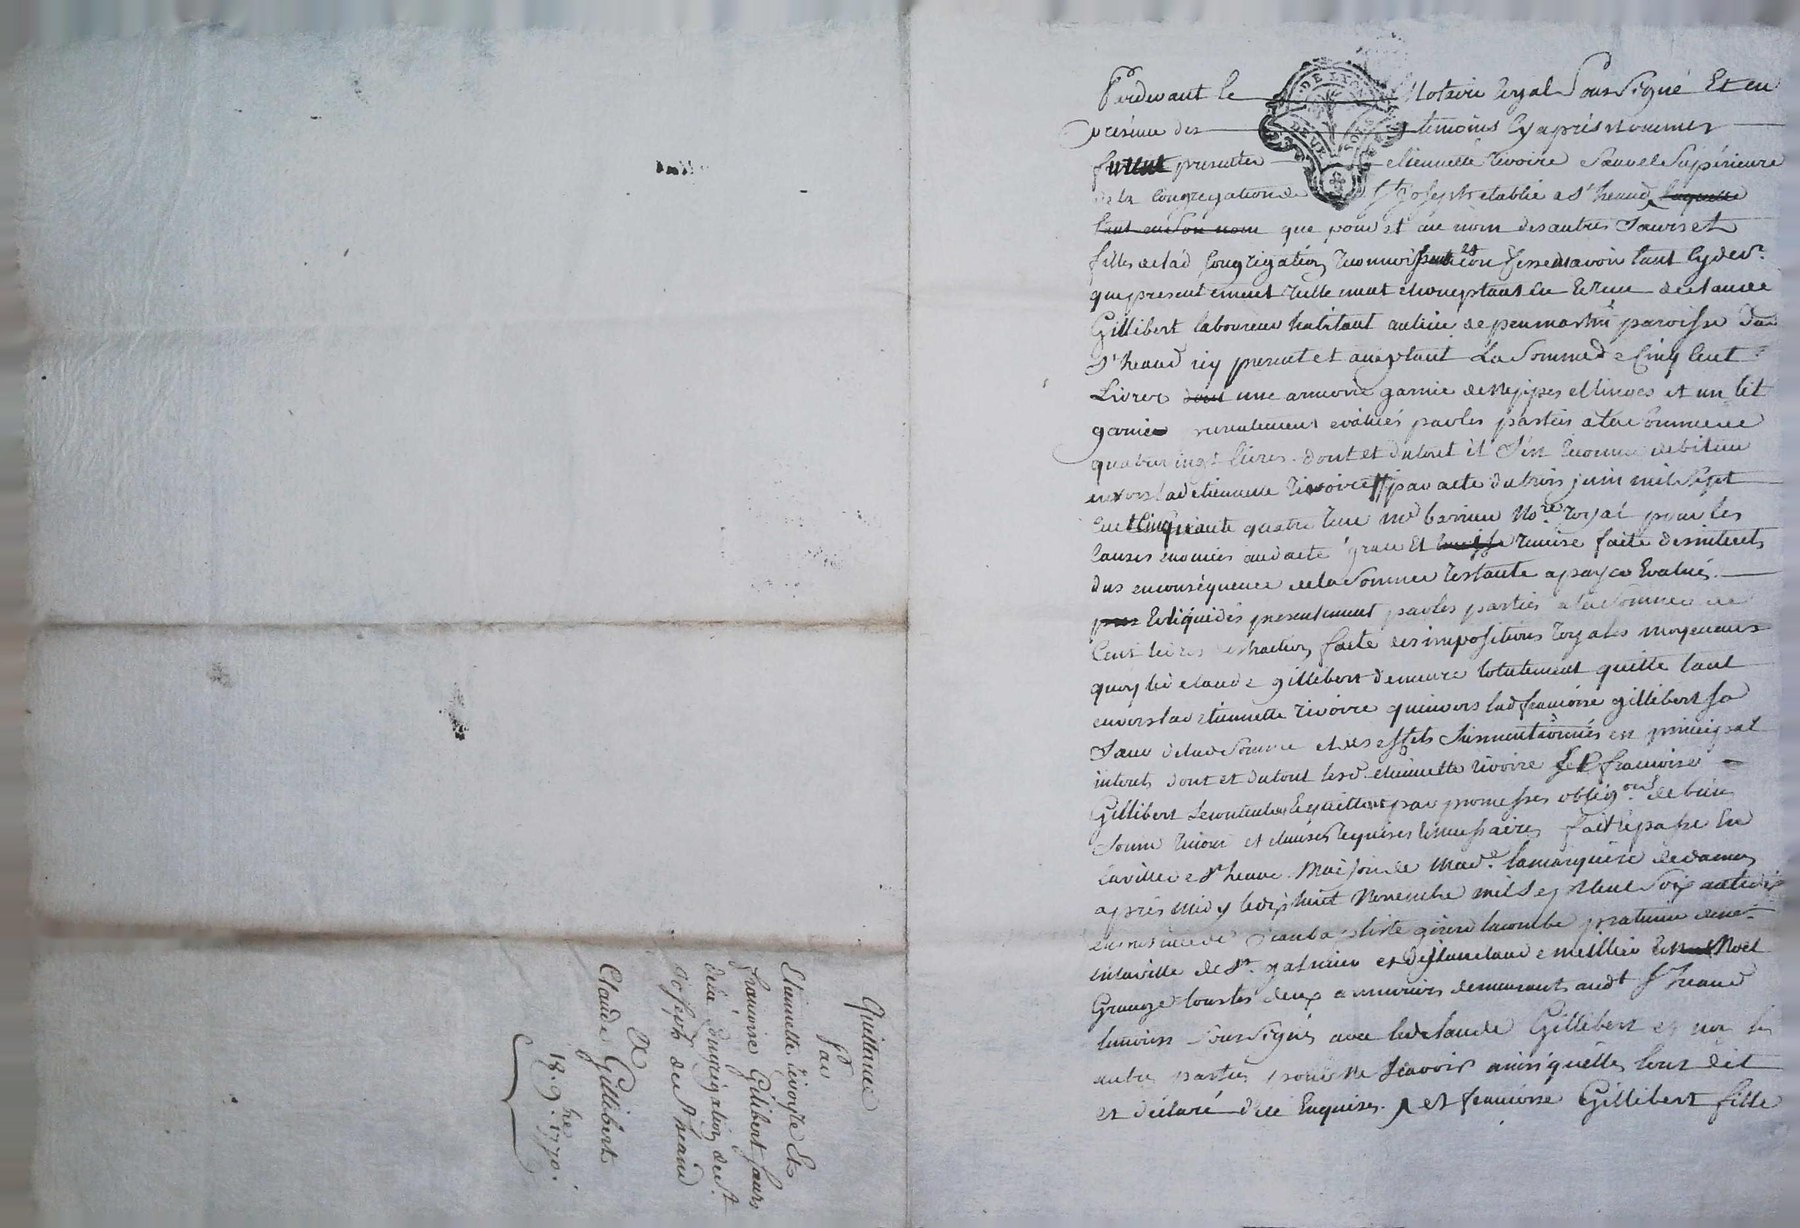 Pardevant le Notaire royal Soussigné Et en
présence des temoins Cy après nommes
furent presentes etiennette rivoire Sœur et Supérieure
de la Congregation de St Joseph etablie a St heand laquelle
tant en son nom que pour et au nom des autres Sœurs et
filles de lad Congrégation, avoir tant Cy dev.t
que presentement reellement et comptant de Claude
Gillibert laboureur habitant au lieu de paroisse du
St heand icy present et acceptant La Somme de Cinq Cent
Livres une armoire garnie de nippes et linges et un lit
garnie evalués par les parties a la Somme de
quatre vingt livres dont et du tout il S'est reconnu debiteur
envers lad etiennette rivoire par acte du trois juin mil Sept
Cent Cinquante quatre No.re royal pour les
Causes enoncées aud acte grace Et remise faite des interets
dus en conséquence de la Somme restante a payer Evalués
Et liquidés presentement par les parties a la Somme de
Cent livres distraction faite des impositions royales moyennant
quoy led claude gillibert demeure totalement quitte tant
envers lad etiennette rivoire qu'envers lad francoise gillibert sa
Sœur de lad Somme et des effets Susmentionnés en principal
interets dont et du tout lesd. etiennette rivoire Et francoise
Gillibert par promesses oblig.ons de biens
Soum renon et clauses requises et necessaires fait et passé En
la ville de St heand Maison de Mad.e la marquise de
après midy le dix huit Novembre mil Sept Cent Soixante dix
en presence de Jean baptiste lacombe praticien dem.t
en la ville de St galmier et de Claude Noel
Grange tous les deux demeurants aud.t St heand
temoins Soussignés avec led claude Gillibert et non les
autres parties pour ne Scavoir ainsi qu'elles l'ont dit
et déclaré de ce Enquises. et francoise Gillibert fille
Quittance
Par
Etiennette rivoyre Et
francoise Gilibert Sœurs
de la Congrégation de St
Joseph de St heand
A
Claude Gillibert
18. 9.bre 1770.